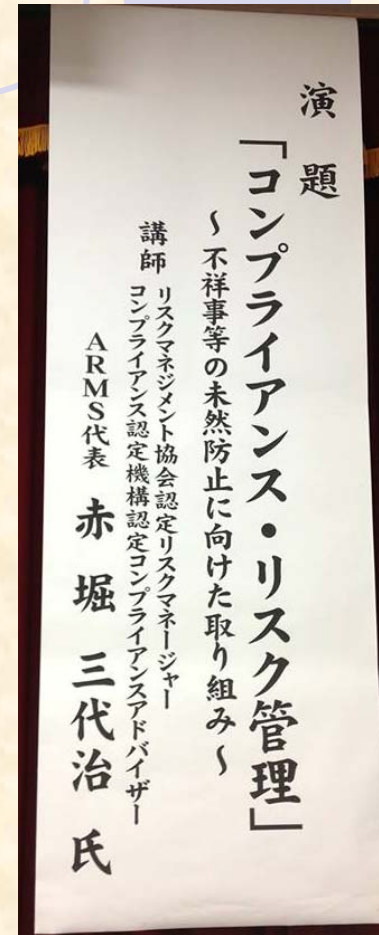 演題
「コンプライアンス・リスク管理」
～不祥事等の未然防止に向けた取り組み～
講師
リスクマネジメント協会認定リスクマネージャー
コンプライアンス認定機構認定コンプライアンスアドバイザー
ARMS代表 赤堀 三代治 氏